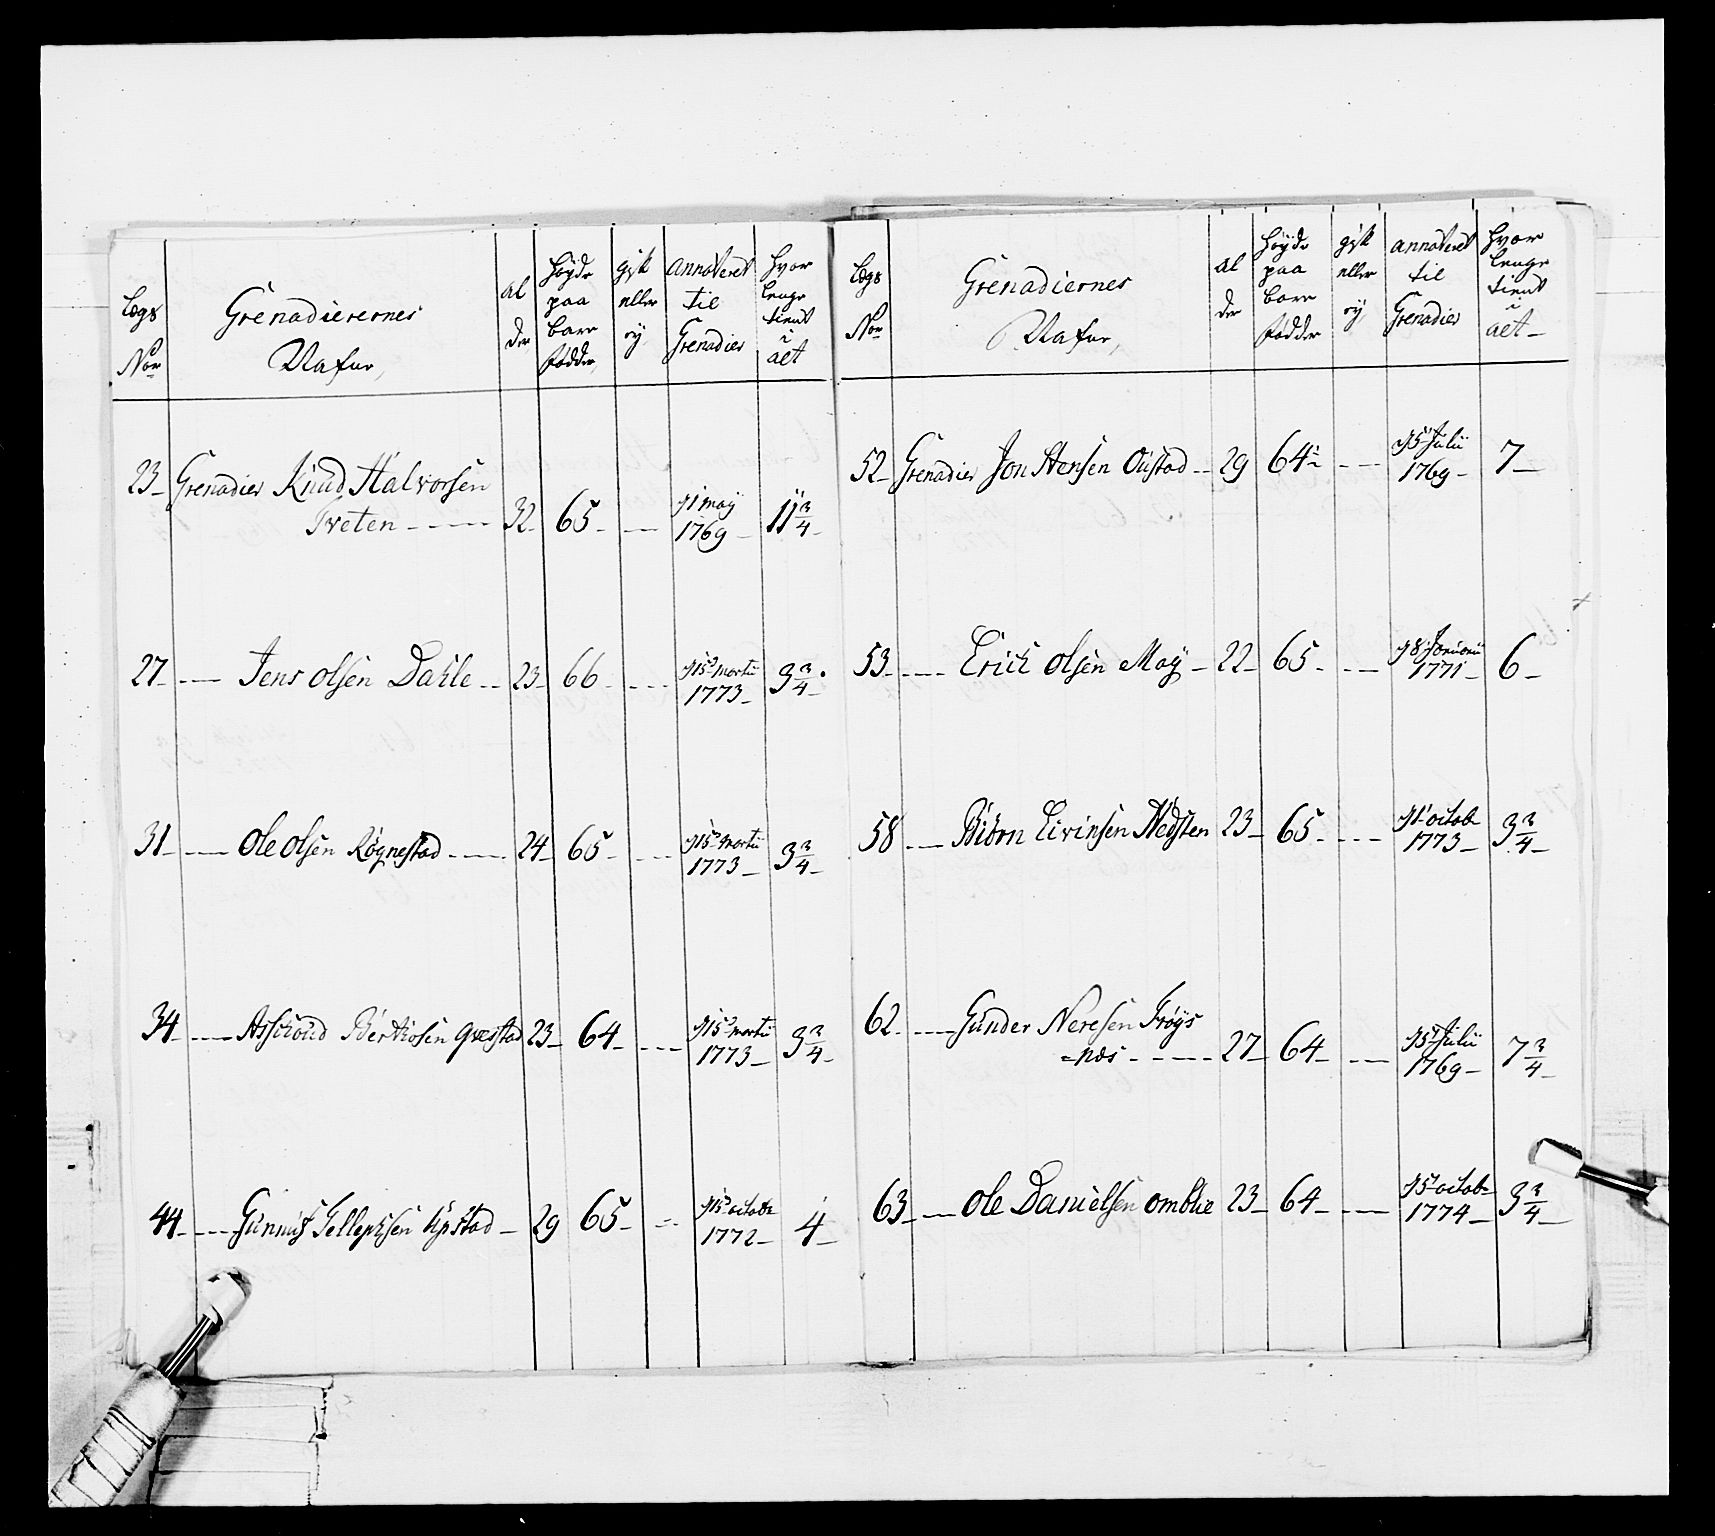 Legs Nor
Grenadierernes Nafne,
Al der
Høyde paa bare fødder,
gift eller ey
annoteret til Grenadier
hvor lenge tient i alt
23 Grenadier Knud Halvorsen
Tveten 32 65 1 may 1769 11 3/4
27 Jens Olsen Dahle 23 66 15 martii 1773 3 3/4
31 Ole Olsen Røgnestad 24 65 15 martii 1773 3 3/4
34 23 64 15 martii 1773 3 3/4
44 29 65 15 octobr 1772 4
Legs Nor
Grenadiernes Nafne,
Al der
Høyde paa bare fødder
gift eller ey
annoteret til Grenadier
hvor lenge tient i alt
52 Grenadier Jon Stensen Oustad 29 64 15 Julii 1769 7
53 Erich Olsen Moy 22 65 18 Januarii 1771 6
58 Biörn Eivinsen 23 65 1 octob 1773 3 3/4
62 Gunder Neresen Frøys
=næs 27 64 15 Julii 1769 7 3/4
63 Ole Danielsen Omblie 23 64 15 octob 1774 3 3/4